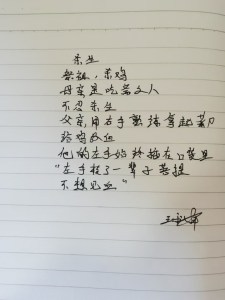 杀生
祭祖，杀鸡
母亲是吃斋之人
不忍杀生
父亲用右手熟练拿起菜刀
给鸡放血
他的左手始终插在口袋里
“左手捻了一辈子菩提
不想见血”